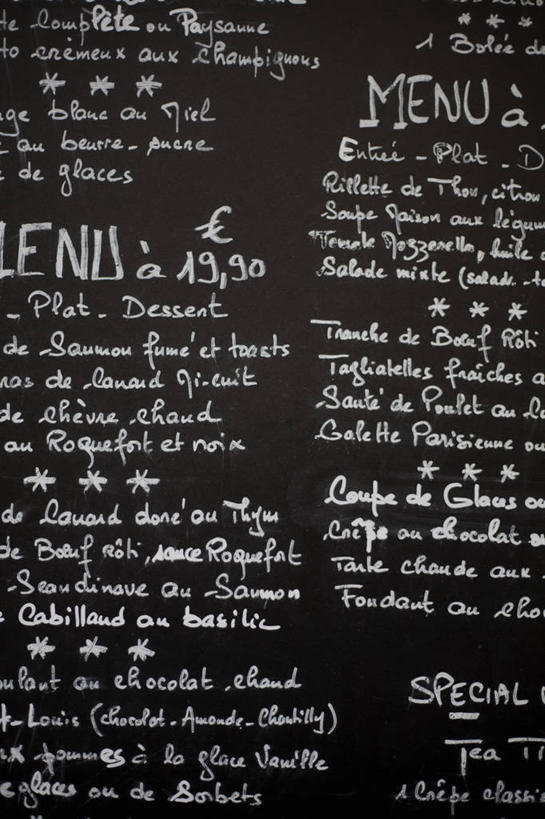 te Complète ou Paysanne
to crémeux aux champignons
* * *
ge blanc au Miel
au beurre-sucre
de glaces
MENU à 19,90 €
- Plat - Dessert
de Saumon fumé et toasts
ras de Canard Mi-cuit
de chèvre chaud
au Roquefort et noix
* * *
de Canard doré au Thym
de Bœuf rôti, sauce Roquefort
Scandinave au Saumon
Cabillaud au basilic
* * *
oulant au chocolat chaud
t-Louis (chocolat-Amande-Chantilly)
ux pommes à la glace Vanille
e glaces ou de Sorbets
* * *
1 Bolée de
MENU à
Entrée - Plat - D
Rillette de Thon, citron
Soupe Maison aux légum
Tomate Mozzarella, huile d
Salade mixte (salade-to
* * *
Tranche de Bœuf Rôti
Tagliatelles fraîches a
Sauté de Poulet au
Galette Parisienne ou
* * *
Coupe de Glaces ou
Crêpe au chocolat
Tarte chaude aux
Fondant au cho
SPECIAL
Tea Ti
1 Crêpe classi